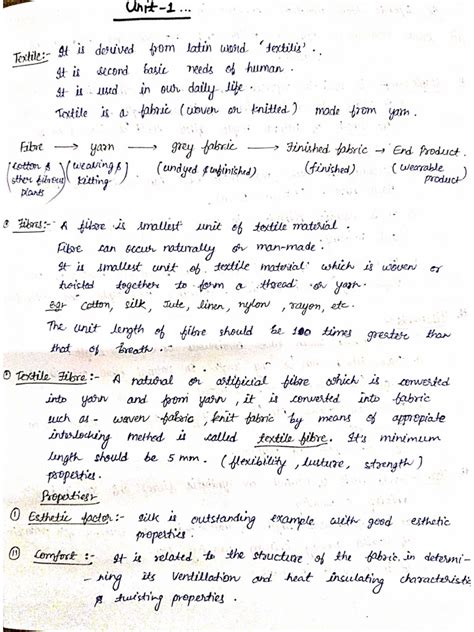 Unit-1...
Textile:- It is derived from latin word 'textilis'.
It is second basic needs of human.
It is used in our daily life.
Textile is a fabric (woven or knitted) made from yarn.
Fibre → yarn → grey fabric → Finished fabric → End Product.
(cotton & other fibrous plants) (weaving & kitting) (undyed & unfinished) (finished) (wearable product)
Fibres:- A fibre is smallest unit of textile material.
Fibre can occur naturally or man-made.
It is smallest unit of textile material which is woven or
twisted together to form a thread or yarn.
eg:- cotton, silk, Jute, linen, nylon, rayon, etc.
The unit length of fibre should be 100 times greater than
that of breath.
Textile Fibre:- A natural or artificial fibre which is converted
into yarn and from yarn, it is converted into fabric
such as - woven fabric, knit fabric by means of appropiate
interlocking method is called textile fibre. It's minimum
length should be 5 mm. (flexibility, lusture, strength)
properties.
Properties:-
(i) Esthetic factor:- silk is outstanding example with good esthetic
properties.
(ii) Comfort:- It is related to the structure of the fabric in determi-
-ning its ventillation and heat insulating characteristic
& twisting properties.